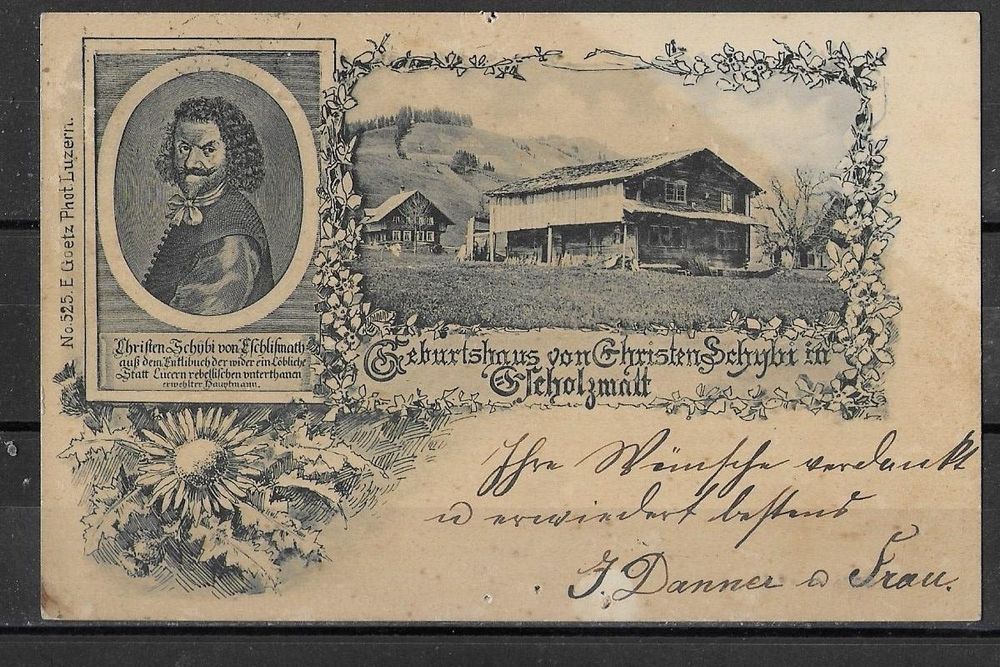 No. 525. E Goetz Phot Luzern.
Christen Schybi von Eschlißmath
auß dem Entlibuch der wider ein Löbliche
Statt Lucern rebellischen vnterthanen
erwehlter Hauptmann.
Geburtshaus von Christen Schybi in
Escholzmatt
Ihre Wünsche verdankt
u erwiedert bestens
J. Danner u Frau.